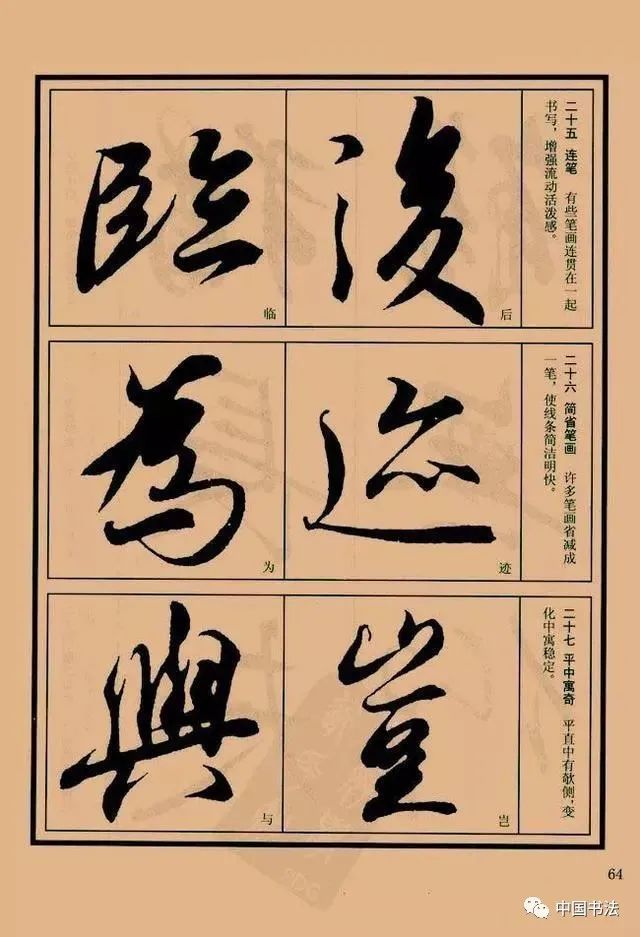 二十五 连笔 有些笔画连贯在一起
书写，增强流动活泼感。
後
后
臨
临
二十六 简省笔画 许多笔画省减成
一笔，使线条简洁明快。
迹
迹
為
为
二十七 平中寓奇 平直中有欹侧，变
化中寓稳定。
豈
岂
與
与
64
中国书法